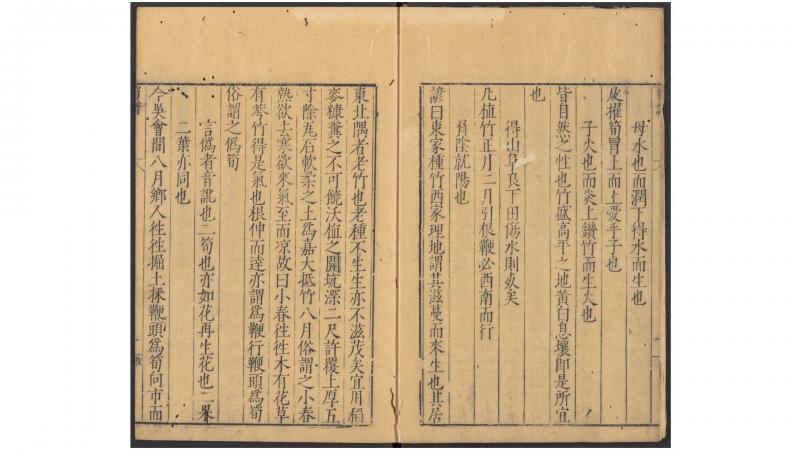 母水也而潤下得水而生也
及擢筍冒上而土愛乎子也
子火也而炎上鑽竹而生火也
皆自然之性也竹盛高平之地黃白息壤卽是所宜
也
得山阜良下田傷水則必矣
凡植竹正月二月引根鞭必西南而行
負陰就陽也
諺曰東家種竹西家理地謂其滋蔓而來生也其居
東北隅者老竹也老種不生生亦不滋茂矣宜用稻
麥糠糞之不可饒沃植之開坑深二尺許覆土厚五
寸除瓦石軟柔之土爲嘉大抵竹八月俗謂之小春
熱欲去寒欲來氣至而凉故曰小春徃徃木有花草
有荂竹得是氣也根伸而達亦謂爲鞭行鞭頭爲筍
俗謂之僞筍
言僞者音訛也二筍也亦如花再生花也二果
二葉亦同也
今吳會間八月鄕人徃徃掘土採鞭頭爲筍向市而
筍譜